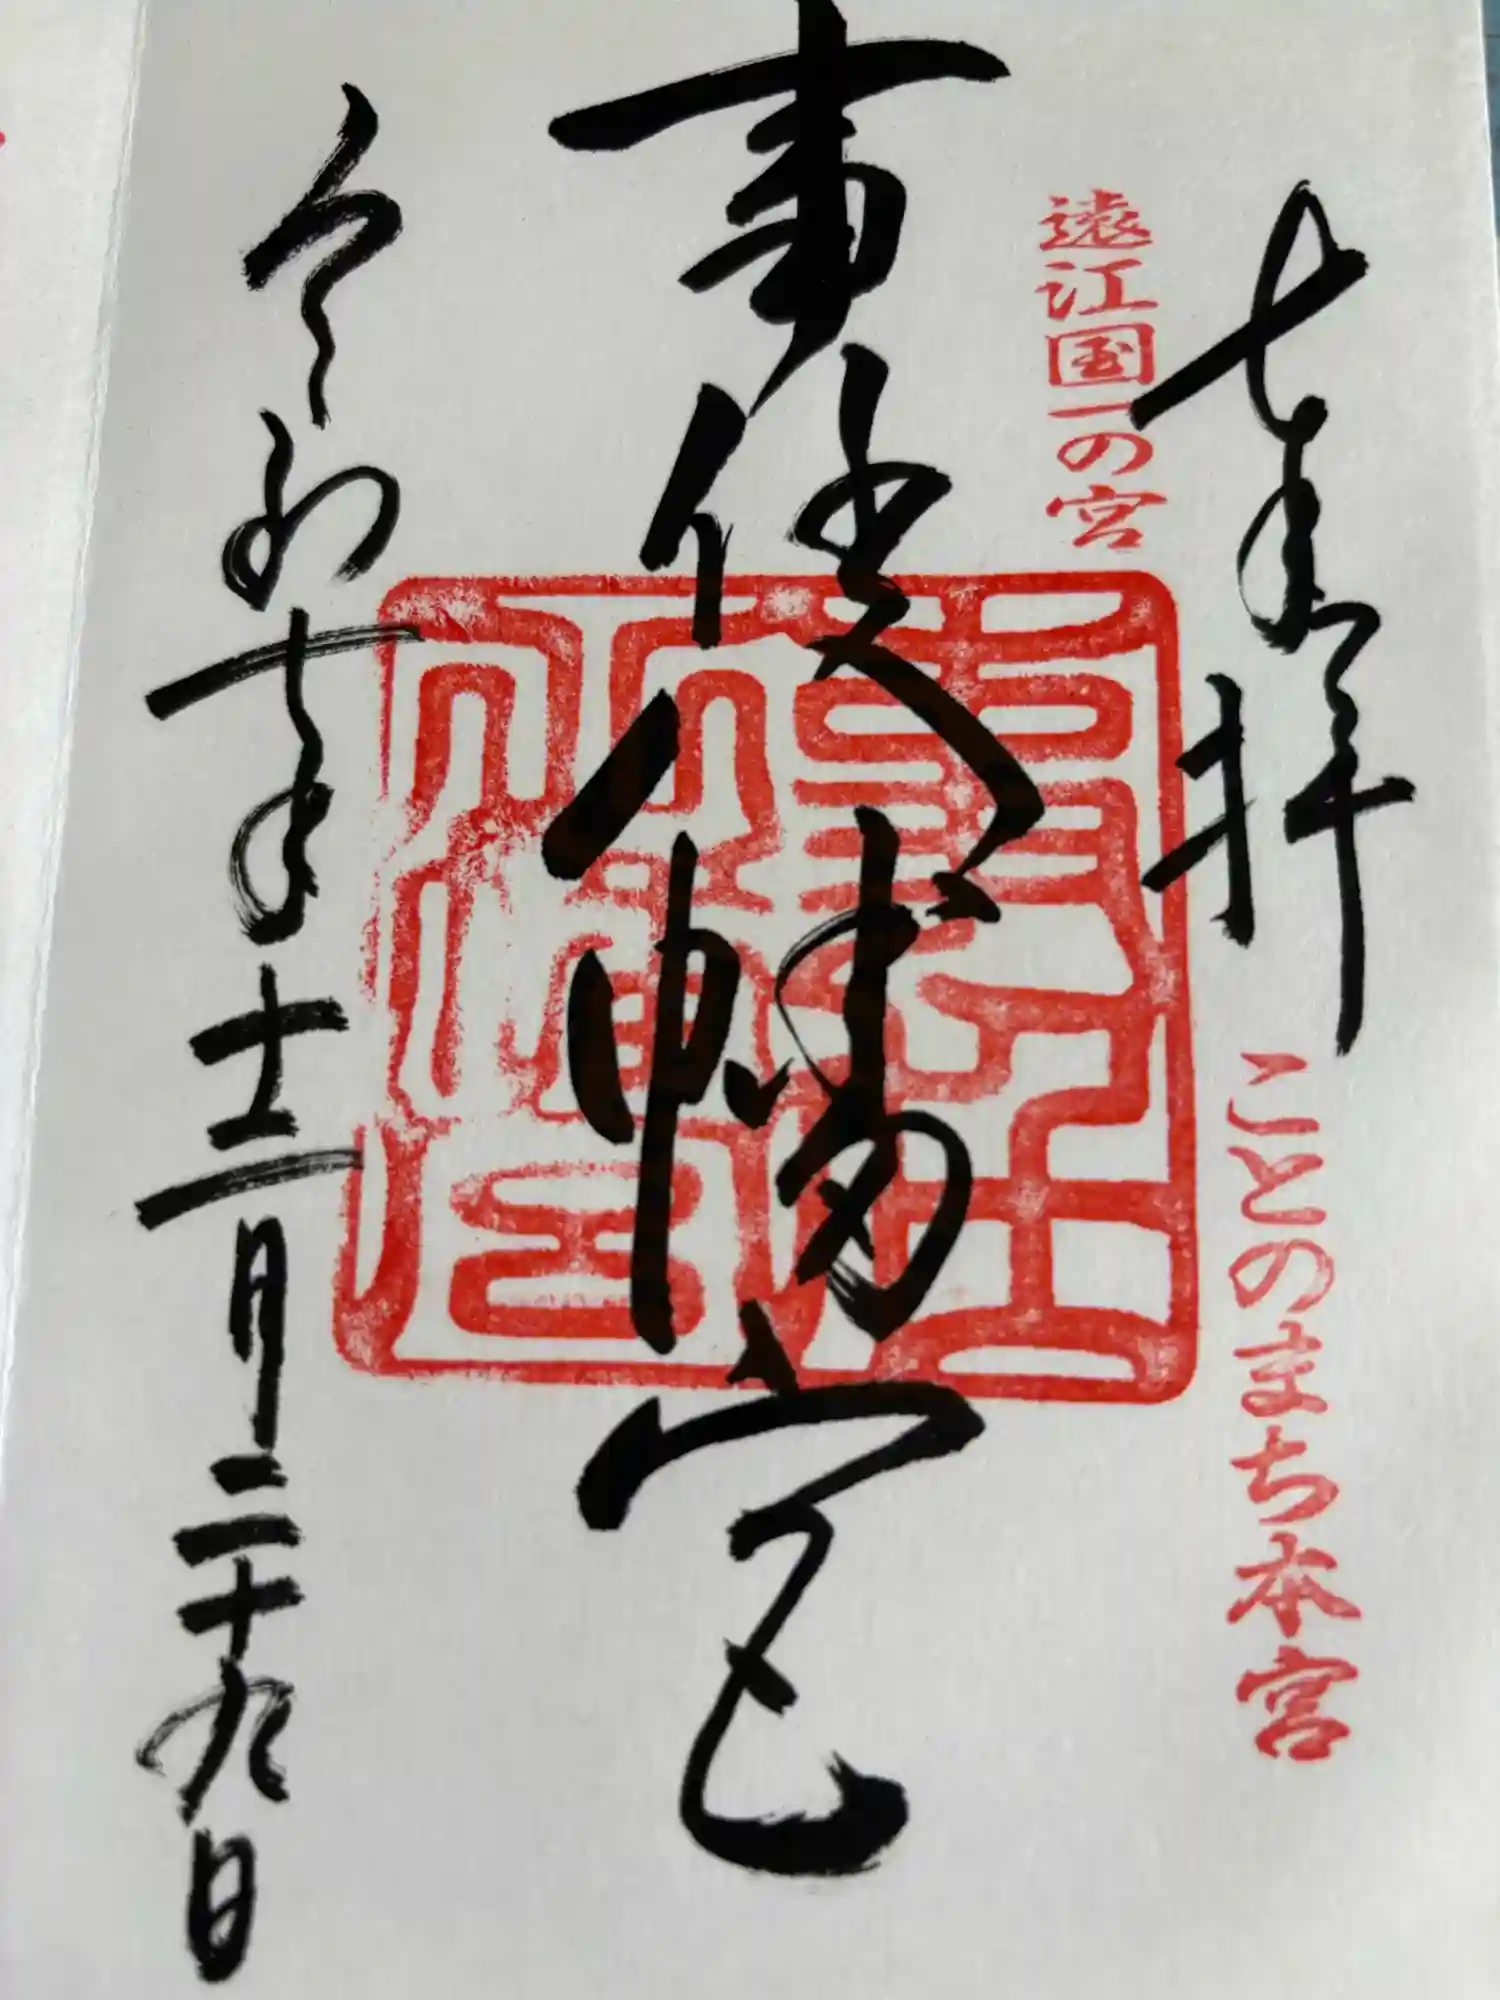 奉拝
ことのまち本宮
遠江国一の宮
事任八幡宮
令和七年十二月二十九日